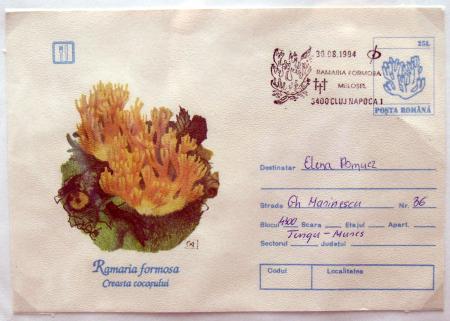 25L
POȘTA ROMÂNĂ
30.08.1994
RAMARIA FORMOSA
3400 CLUJ NAPOCA 1
Destinatar Elena Pomucz
Strada Gh Marinescu Nr. 36
Blocul 4300 Scara Etajul Apart.
Tirgu-Mures
Sectorul Județul
Codul Localitatea
Ramaria formosa
Creasta cocoșului